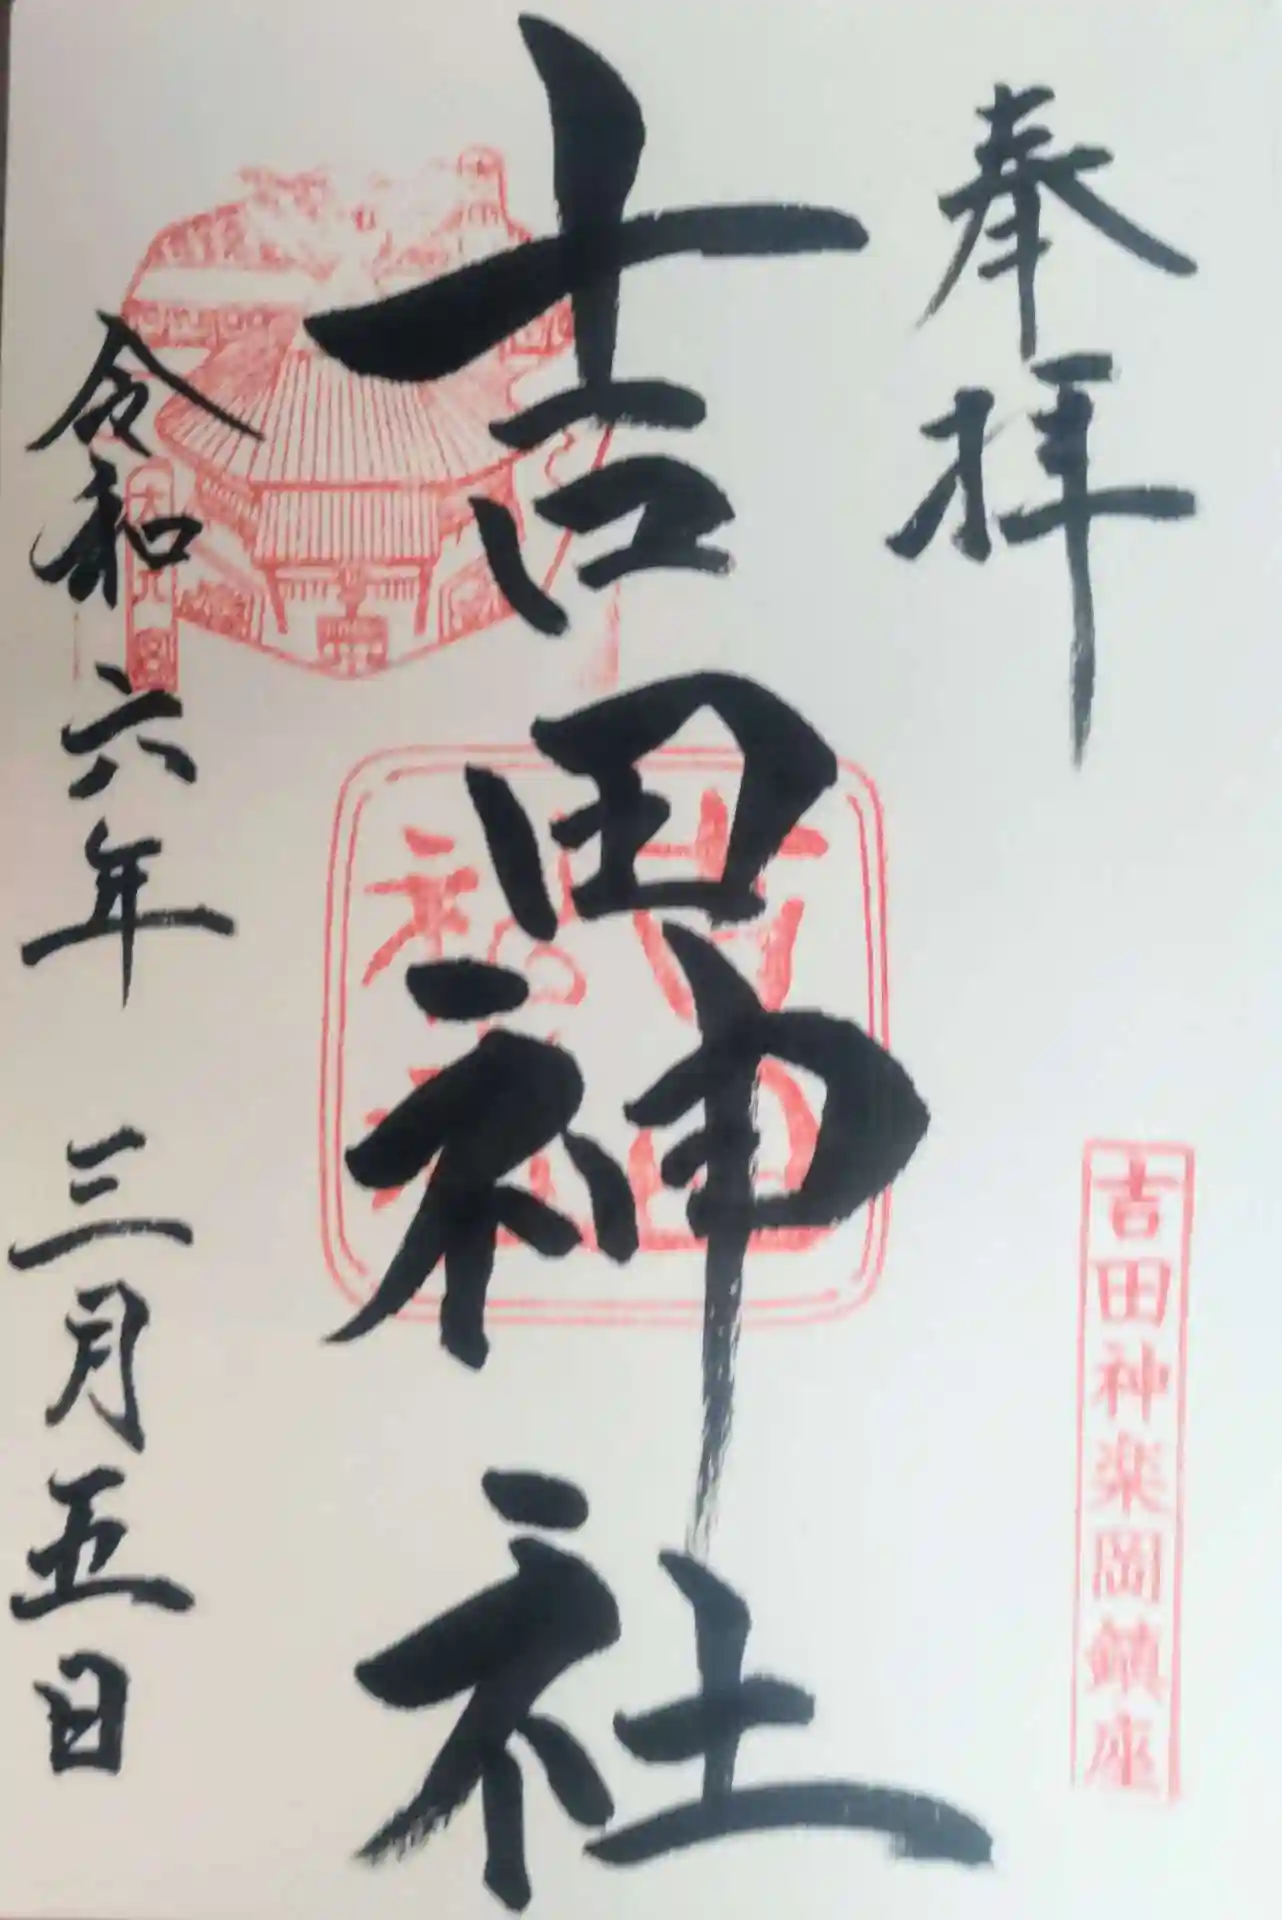 奉拝
吉田神楽岡鎮座
吉田神社
令和六年 三月五日